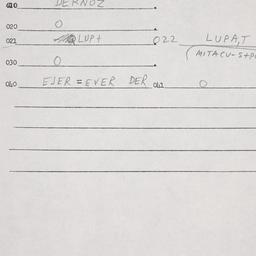 010 DERNOZ
020 O
021 LUP+ 022 LUPA,T
(MITACU-S+P
030 O
060 EJER = EVER DER 061 O